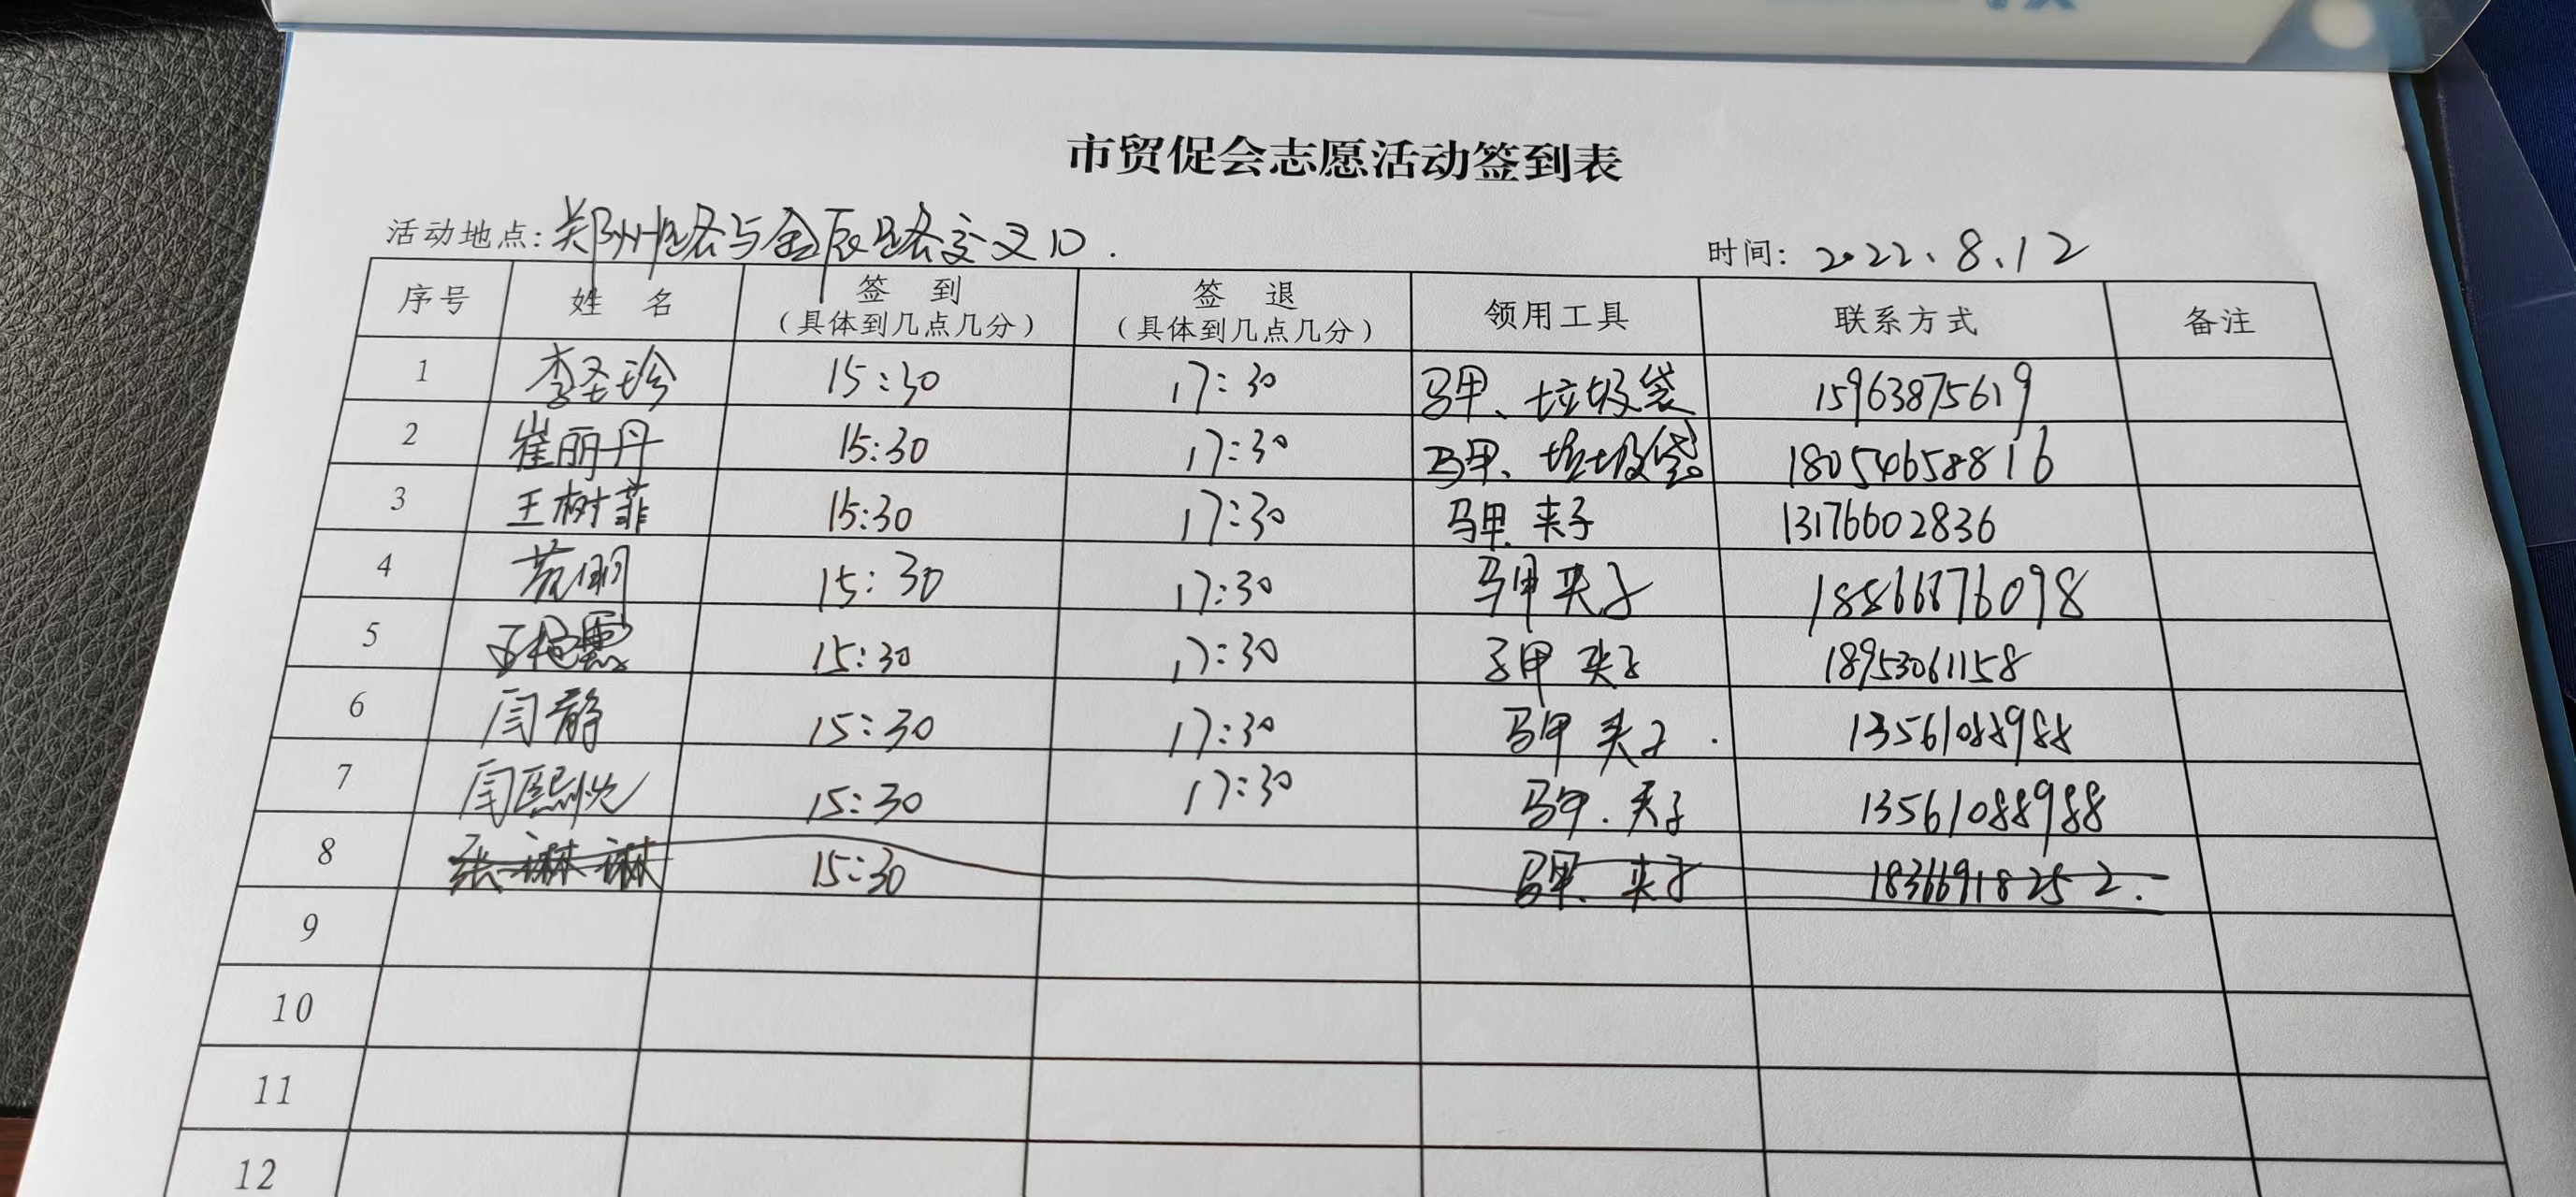 市贸促会志愿活动签到表
活动地点: 郑州路与金辰路交叉口.
时间: 2022、8、12
序号 姓 名 签 到 (具体到几点几分) 签 退 (具体到几点几分) 领用工具 联系方式 备注
1 李圣珍 15:30 17:30 马甲、垃圾袋 15963875619
2 崔丽丹 15:30 17:30 马甲、垃圾袋 18054658816
3 王树菲 15:30 17:30 马甲 夹子 13176602836
4 苑明 15:30 17:30 马甲 夹子 18866876098
5 15:30 17:30 马甲 夹子 18953061158
6 闫静 15:30 17:30 马甲 夹子. 13561088988
7 闫熙悦 15:30 17:30 马甲. 夹子 13561088988
8 张琳琳 15:30 马甲、夹子 18366918252.
9
10
11
12